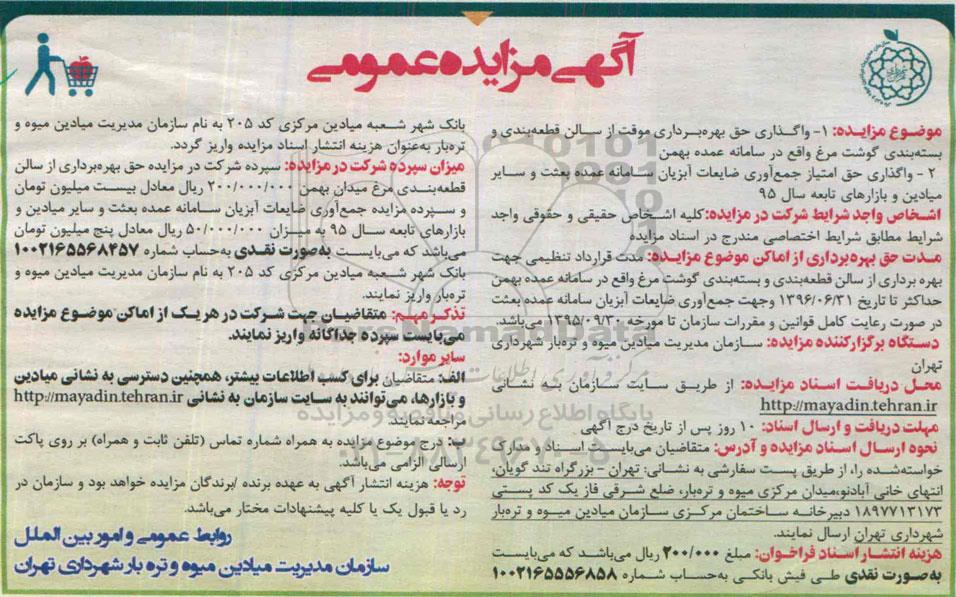 آگهی مزایده عمومی
موضوع مزایده: ۱- واگذاری حق بهره‌برداری موقت از سالن قطعه‌بندی و
بسته‌بندی گوشت مرغ واقع در سامانه عمده بهمن
۲ - واگذاری حق امتیاز جمع‌آوری ضایعات آبزیان سامانه عمده بعثت و سایر
میادین و بازارهای تابعه سال ۹۵
اشخاص واجد شرایط شرکت در مزایده: کلیه اشخاص حقیقی و حقوقی واجد
شرایط مطابق شرایط اختصاصی مندرج در اسناد مزایده
مدت حق بهره‌برداری از اماکن موضوع مزایده: مدت قرارداد تنظیمی جهت
بهره برداری از سالن قطعه‌بندی و بسته‌بندی گوشت مرغ واقع در سامانه عمده بهمن
حداکثر تا تاریخ ۱۳۹۶/۰۶/۳۱ وجهت جمع‌آوری ضایعات آبزیان سامانه عمده بعثت
در صورت رعایت کامل قوانین و مقررات سازمان تا مورخه ۱۳۹۵/۰۹/۳۰ می‌باشد.
دستگاه برگزارکننده مزایده: سازمان مدیریت میادین میوه و تره‌بار شهرداری
تهران
محل دریافت اسناد مزایده: از طریق سایت سازمان به نشانی
http://mayadin.tehran.ir
مهلت دریافت و ارسال اسناد: ۱۰ روز پس از تاریخ درج آگهی
نحوه ارسال اسناد مزایده و آدرس: متقاضیان می‌بایست اسناد و مدارک
خواسته‌شده را، از طریق پست سفارشی به نشانی: تهران - بزرگراه تند گویان،
انتهای خانی آبادنو،میدان مرکزی میوه و تره‌بار، ضلع شرقی فاز یک کد پستی
۱۸۹۷۷۱۳۱۷۳ دبیرخانه ساختمان مرکزی سازمان میادین میوه و تره‌بار
شهرداری تهران ارسال نمایند.
هزینه انتشار اسناد فراخوان: مبلغ ۲۰۰/۰۰۰ ریال می‌باشد که می‌بایست
به‌صورت نقدی طی فیش بانکی به‌حساب شماره ۱۰۰۲۱۶۵۵۵۶۸۵۸
بانک شهر شعبه میادین مرکزی کد ۲۰۵ به نام سازمان مدیریت میادین میوه و
تره‌بار به‌عنوان هزینه انتشار اسناد مزایده واریز گردد.
میزان سپرده شرکت در مزایده: سپرده شرکت در مزایده حق بهره‌برداری از سالن
قطعه‌بندی مرغ میدان بهمن ۲۰۰/۰۰۰/۰۰۰ ریال معادل بیست میلیون تومان
و سپرده مزایده جمع‌آوری ضایعات آبزیان سامانه عمده بعثت و سایر میادین و
بازارهای تابعه سال ۹۵ به میزان ۵۰/۰۰۰/۰۰۰ ریال معادل پنج میلیون تومان
می‌باشد که می‌بایست به‌صورت نقدی به‌حساب شماره ۱۰۰۲۱۶۵۵۶۸۴۵۷
بانک شهر شعبه میادین مرکزی کد ۲۰۵ به نام سازمان مدیریت میادین میوه و
تره‌بار واریز نمایند.
تذکر مهم: متقاضیان جهت شرکت در هر یک از اماکن موضوع مزایده
می‌بایست سپرده جداگانه واریز نمایند.
سایر موارد:
الف: متقاضیان برای کسب اطلاعات بیشتر، همچنین دسترسی به نشانی میادین
و بازارها، می‌توانند به سایت سازمان به نشانی http://mayadin.tehran.ir
مراجعه نمایند.
ب: درج موضوع مزایده به همراه شماره تماس (تلفن ثابت و همراه) بر روی پاکت
ارسالی الزامی می‌باشد.
توجه: هزینه انتشار آگهی به عهده برنده /برندگان مزایده خواهد بود و سازمان در
رد یا قبول یک یا کلیه پیشنهادات مختار می‌باشد.
روابط عمومی و امور بین الملل
سازمان مدیریت میادین میوه و تره بار شهرداری تهران
ParsNamadData
پایگاه اطلاع رسانی مناقصه و مزایده